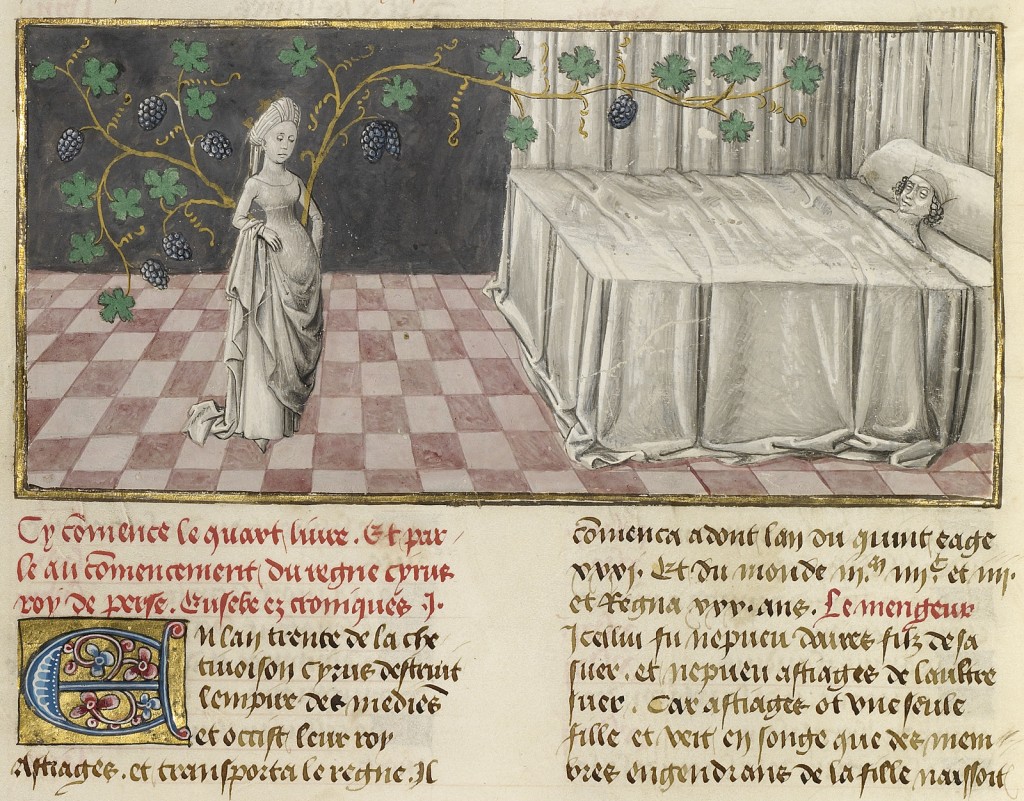 Cy cōmence le quart liure. Et par
le au cōmencement du regne cyrus
roy de perse. Eusebe ez croniques .I.
En lan trente de la che
tiuoison cyrus destruit
lempire des mediēs
et occist leur roy
Astiages. et transporta le regne. Il
cōmenca adont lan du quint eage
xxxi. Et du monde iii.m iiii.c et iii.
et Regna xxx. ans. Le mengeur
Icellui fu nepueu daires filz de sa
suer. et nepueu astiages de laultre
suer. Car astiages ot vne seule
fille et veit en songe que des mem
bres engendrans de la fille naissoit